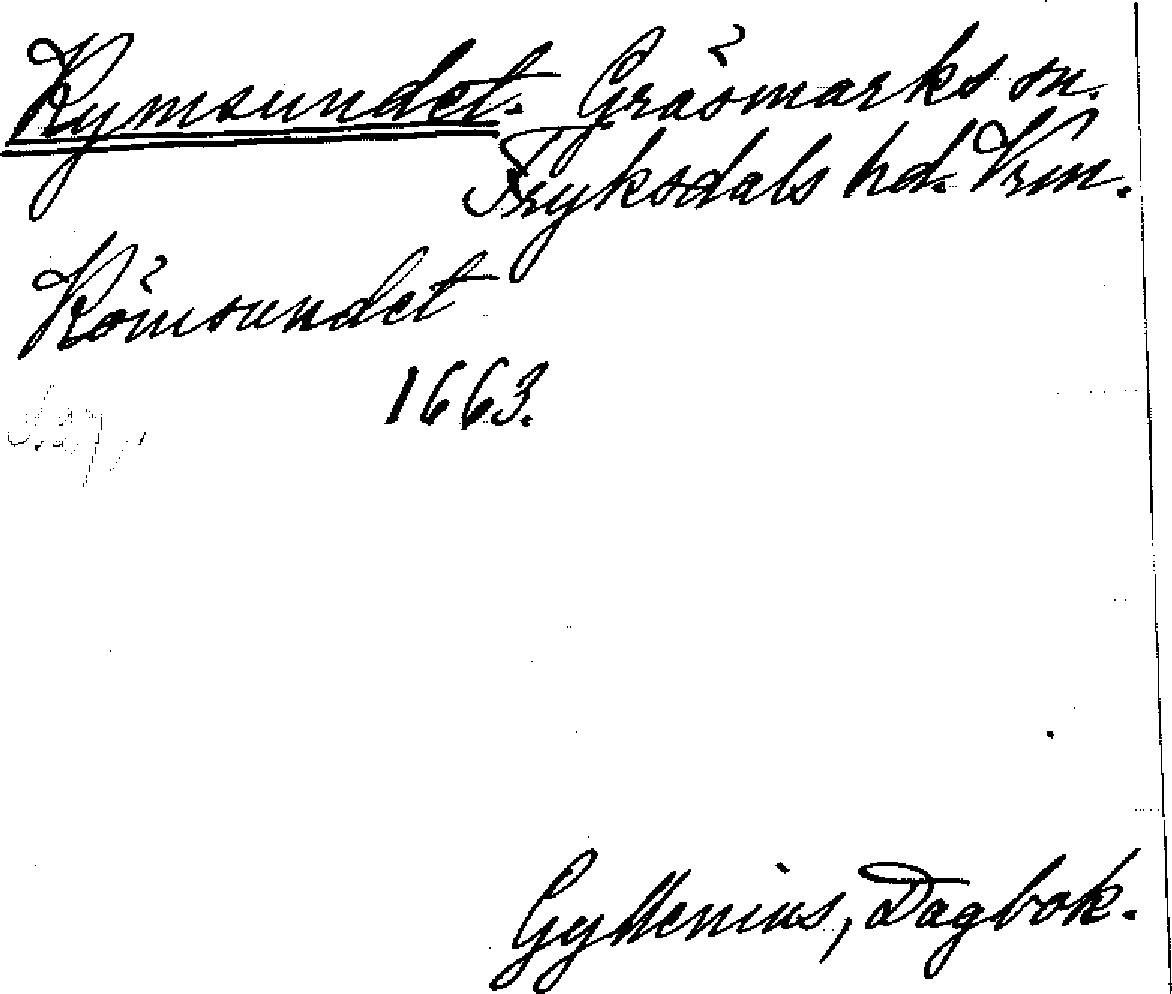 Kymsundet. Gräsmarks sn.
Fryksdals hd. Vrm.
Kömsundet
1663.
Gyllenius, Dagbok.